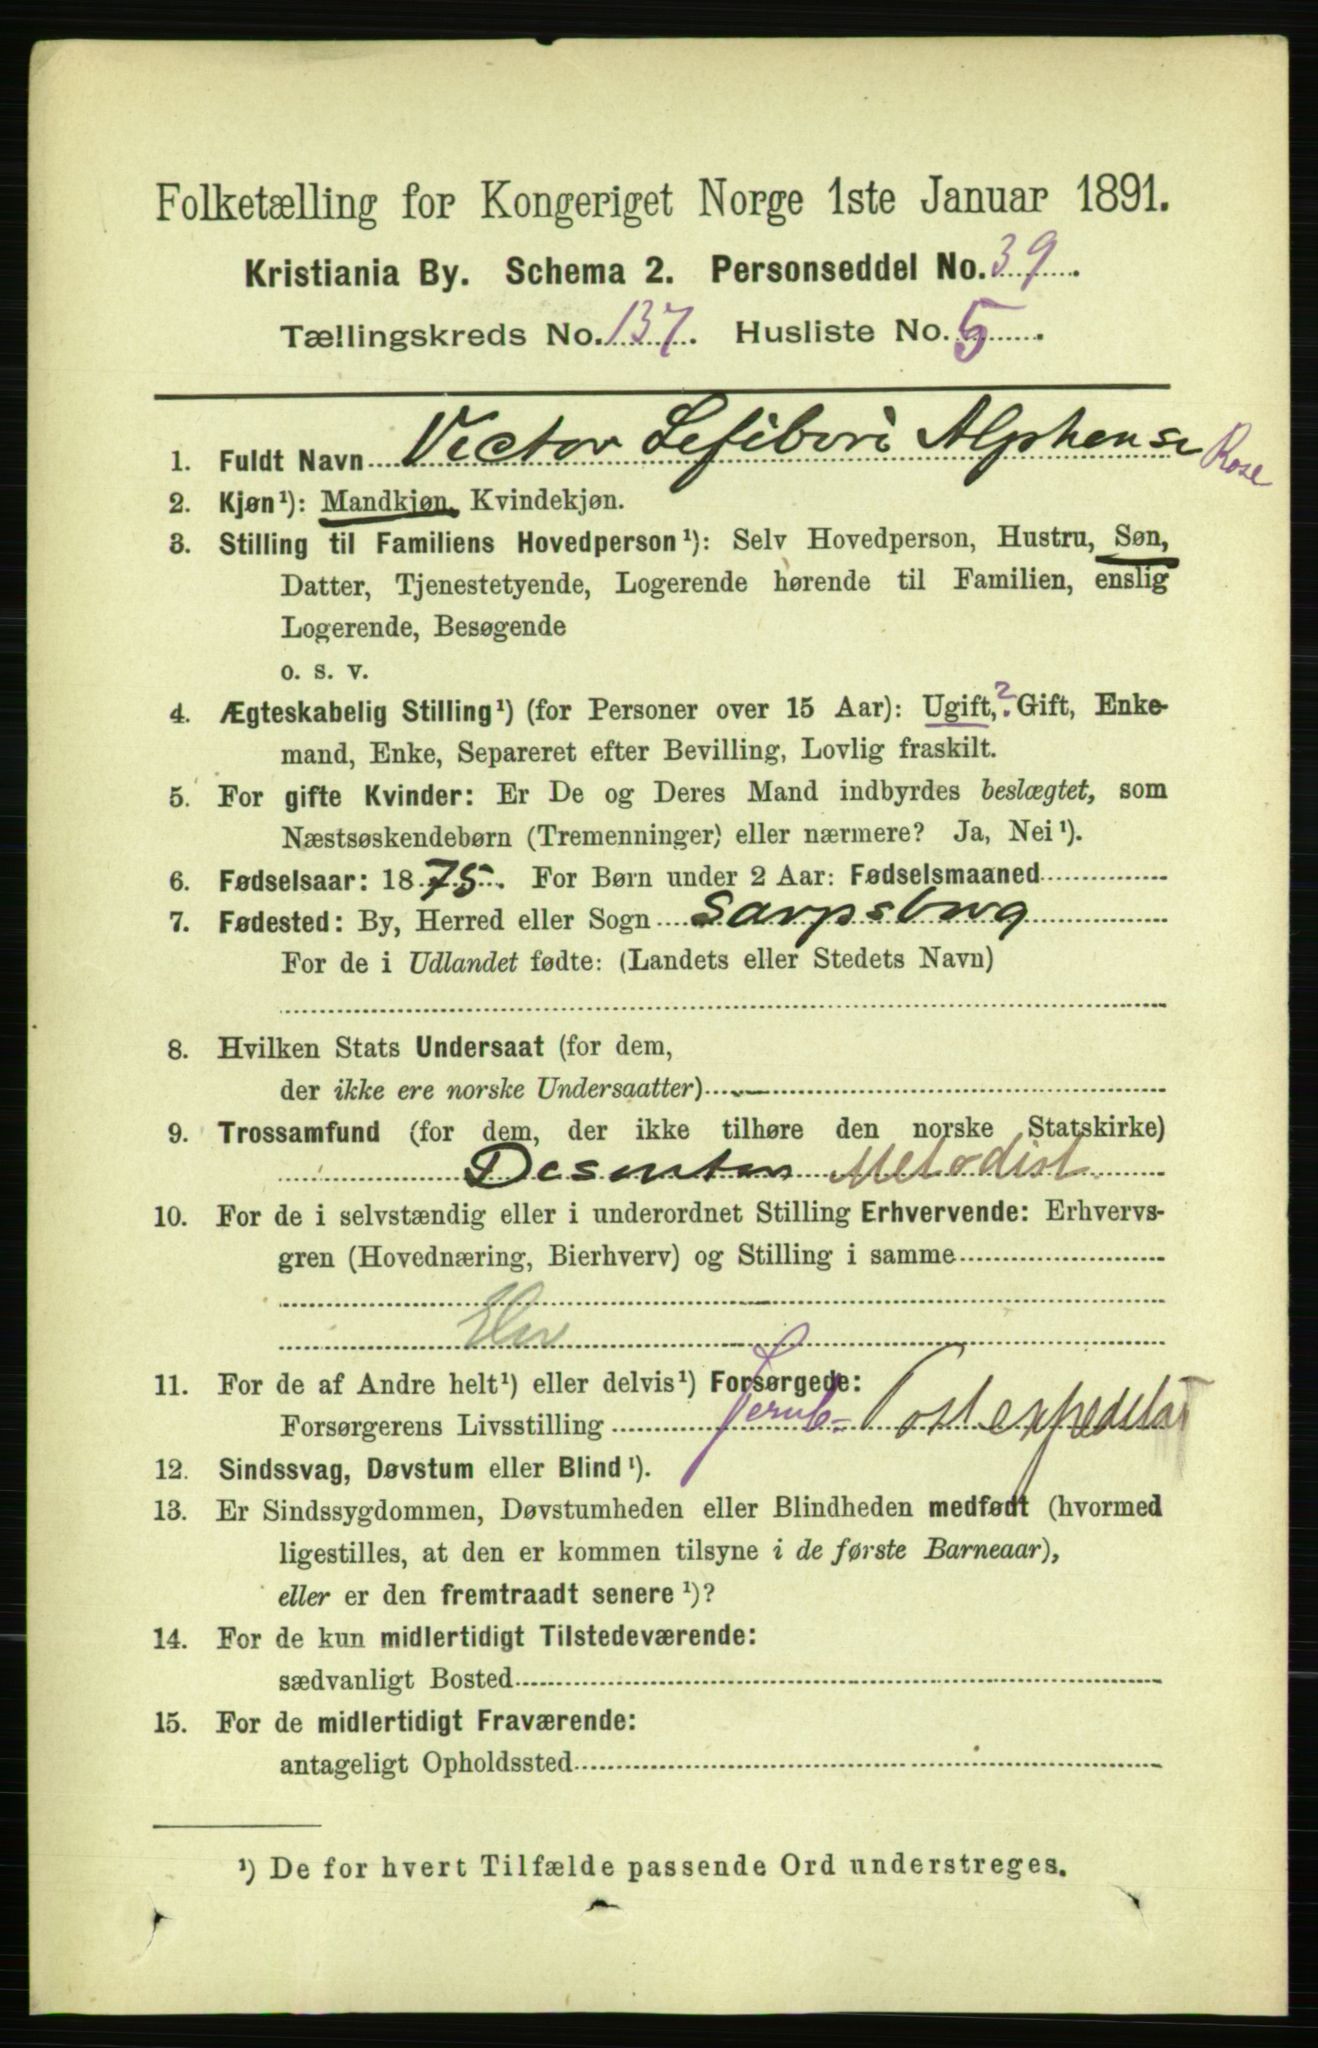 Folketælling for Kongeriget Norge 1ste Januar 1891.
Kristiania By. Schema 2. Personseddel No. 39.
Tællingskreds No. 137. Husliste No. 5.
1. Fuldt Navn Victor Lefibvri Alphense Rose
2. Kjøn¹): Mandkjøn, Kvindekjøn.
3. Stilling til Familiens Hovedperson¹): Selv Hovedperson, Hustru, Søn,
Datter, Tjenestetyende, Logerende hørende til Familien, enslig
Logerende, Besøgende
o. s. v.
4. Ægteskabelig Stilling¹) (for Personer over 15 Aar): Ugift,? Gift, Enke-
mand, Enke, Separeret efter Bevilling, Lovlig fraskilt.
5. For gifte Kvinder: Er De og Deres Mand indbyrdes beslægtet, som
Næstsøskendebørn (Tremenninger) eller nærmere? Ja, Nei¹).
6. Fødselsaar: 1875. For Børn under 2 Aar: Fødselsmaaned
7. Fødested: By, Herred eller Sogn Sarpsborg
For de i Udlandet fødte: (Landets eller Stedets Navn)
8. Hvilken Stats Undersaat (for dem,
der ikke ere norske Undersaatter)
9. Trossamfund (for dem, der ikke tilhøre den norske Statskirke)
Desenter Metodist
10. For de i selvstændig eller i underordnet Stilling Erhvervende: Erhvervs-
gren (Hovednæring, Bierhverv) og Stilling i samme
11. For de af Andre helt¹) eller delvis¹) Forsørgede:
Forsørgerens Livsstilling Jernb- Postexpeditør
12. Sindssvag, Døvstum eller Blind¹).
13. Er Sindssygdommen, Døvstumheden eller Blindheden medfødt (hvormed
ligestilles, at den er kommen tilsyne i de første Barneaar),
eller er den fremtraadt senere¹)?
14. For de kun midlertidigt Tilstedeværende:
sædvanligt Bosted
15. For de midlertidigt Fraværende:
antageligt Opholdssted
¹) De for hvert Tilfælde passende Ord understreges.